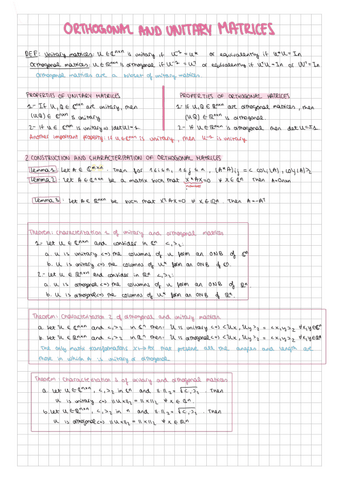 ORTHOGONAL AND UNITARY MATRICES
DEF: Unitary matrices: U ∈ ℂⁿˣⁿ is unitary if U⁻¹ = Uᴴ or equivalently if UᴴU = In
Orthogonal matrices: U ∈ ℝⁿˣⁿ is orthogonal if U⁻¹ = Uᵗ or equivalently if UᵗU = In or UUᵗ = In
Orthogonal matrices are a subset of unitary matrices
PROPERTIES OF UNITARY MATRICES
1.- If U, Q ∈ ℂⁿˣⁿ are unitary, then
(U·Q) ∈ ℂⁿˣⁿ is unitary
2.- If U ∈ ℂⁿˣⁿ is unitary
Another important property: if U ∈ ℂⁿˣⁿ is unitary, then is unitary
PROPERTIES OF ORTHOGONAL MATRICES
1.- If U, Q ∈ ℝⁿˣⁿ are orthogonal matrices, then
(U·Q) ∈ ℝⁿˣⁿ is orthogonal
2.- If U ∈ ℝⁿˣⁿ is orthogonal, then det U = ±1
2 CONSTRUCTION AND CHARACTERIZATION OF ORTHOGONAL MATRICES
Lemma 1: Let A ∈ Then for
Lemma 2: Let A ∈ ℂⁿˣⁿ be a matrix such that = 0 ∀ x ∈ ℂⁿ. Then A = 0
Lemma Let A ∈ ℝⁿˣⁿ be such that xᵗAx = 0 ∀ x ∈ ℝⁿ. Then A = -Aᵗ
Theorem: Characterization 1 of unitary and orthogonal matrices
1.- Let U ∈ ℂⁿˣⁿ and consider in ℂⁿ <,>₂.
a. U is unitary <=> the columns of U form an ONB of ℂⁿ
b. U is unitary <=> the columns of Uᴴ form an ONB of ℂⁿ.
2.- Let U ∈ ℝⁿˣⁿ and consider in ℝⁿ <,>₂.
a. U is orthogonal <=> the columns of U form an ONB of ℝⁿ
b. U is orthogonal <=> the columns of form an ONB of ℝⁿ.
Theorem: Characterization 2 of orthogonal and unitary matrices
a. Let U ∈ ℂⁿˣⁿ and <,>₂ in ℂⁿ. Then: U is unitary <=> <Ux, Uy>₂ = <x,y>₂ ∀x,y∈ℂⁿ
b. Let U ∈ ℝⁿˣⁿ and <,>₂ in ℝⁿ. Then: U is orthogonal <=> <Ux, Uy>₂ = <x,y>₂ ∀x,y∈ℝⁿ
The only matrix transformations that preserve all the angles and length are
those in which A is unitary or orthogonal
Theorem: Characterization 3 of unitary and orthogonal matrices
a. Let U ∈ ℂⁿˣⁿ, <,>₂ in ℂⁿ and Then
U is unitary <=> ||Ux||₂ = ||x||₂ ∀ x ∈ ℂⁿ
b. Let U ∈ ℝⁿˣⁿ, <,>₂ in and Then
U is orthogonal <=> ||Ux||₂ = ||x||₂ ∀ x ∈ ℝⁿ